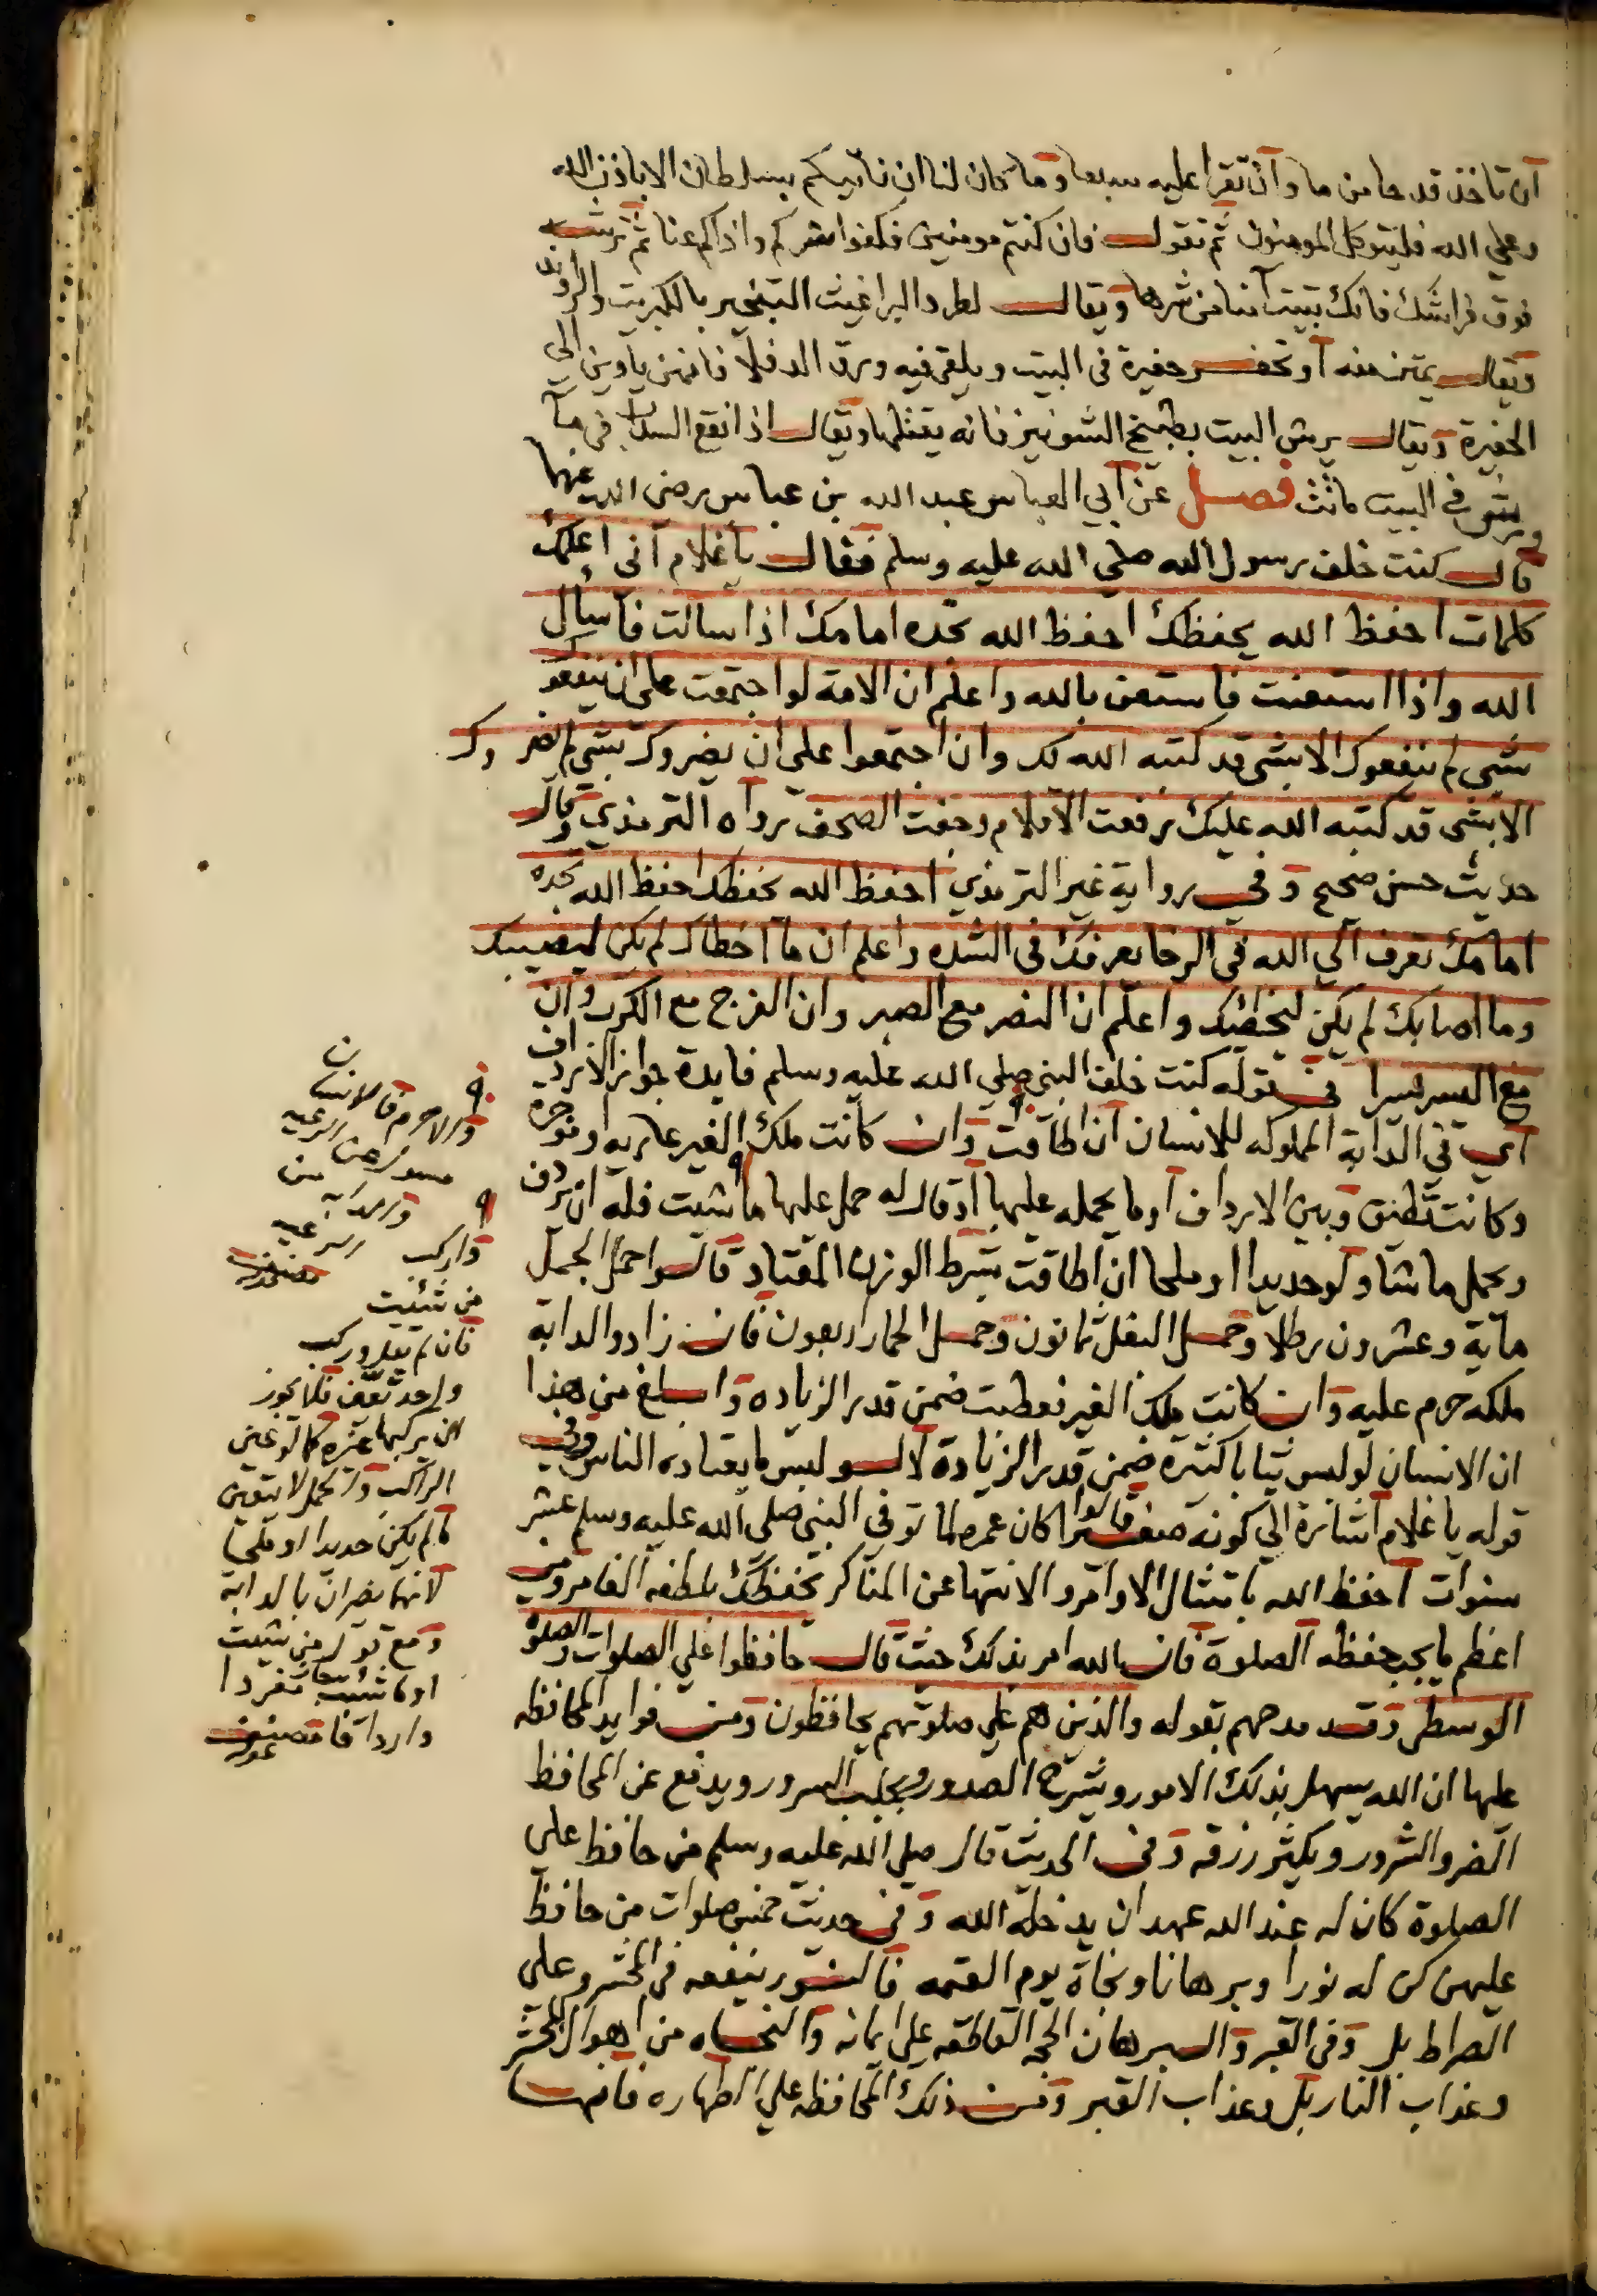 ان تاخذ قدحا من ما وان تقرا عليه سبعا وما كان لنا ان ناتيكم بسلطان الا باذن الله
وعلي الله فليتوكل المومنون ثم تقول فان كنتم مومنين فكفوا شركم واذاكم عنا ثم ترشه
فوق فراشك فانك تبيت آمنا من شرها ويقال لطرد البراغيث التبخير بالكبريت والراوند
ويقال يمتن منه او تحفر حفيرة في البيت ويلقي فيه ورق الدفلا فانهن ياوين الي
الحفيرة ويقال يرش البيت بطبيخ الشونيز فانه يقتلها ويقال اذا نقع السداب في مآ
ورش في البيت ماتت فصل عن ابي العباس عبد الله بن عباس رضي الله عنهما
قال كنت خلف رسول الله صلي الله عليه وسلم فقال يا غلام اني اعلمك
كلمات احفظ الله يحفظك احفظ الله تجده امامك اذا سالت فاسال
الله واذا استعنت فاستعن بالله واعلم ان الامة لو اجتمعت على ان ينفعوك
بشي لم ينفعوك الا بشي قد كتبه الله لك وان اجتمعوا علي ان يضروك بشي لم يضروك
الا بشي قد كتبه الله عليك رفعت الاقلام وجفت الصحف رواه الترمذي وقال
حديث حسن صحيح وفي رواية غير الترمذي احفظ الله يحفظك احفظ الله تجده
امامك تعرف الي الله في الرخا يعرفك في الشده واعلم ان ما اخطاك لم يكن ليصيبك
وما اصابك لم يكن ليخطئك واعلم ان النصر مع الصبر وان الفرج مع الكرب وان
مع العسر يسرا في قوله كنت خلف النبي صلي الله عليه وسلم فايدة جواز الارداف
اي في الدابة المملوكه للانسان ان اطاقت وان كانت ملك الغير عاريه او موجره
وكانت تطيق وبين الارداف او ما يحمله عليها او قال له حمل عليها ما شيت فله ان يردف
ويحمل ما شا ولو حديدا او ملحا ان اطاقت بشرط الوزن المعتاد قالوا حمل الجمل
ماية وعشرون رطلا وحمل البغل ثمانون وحمل الحمار اربعون فان زاد والدابة
ملكه حرم عليه وان كانت ملك الغير فعطبت ضمن قدر الزياده وابلغ من هذا
ان الانسان لو لبس ثيابا كثيرة ضمن قدر الزيادة لا لو لبس ما يعتاده الناس وفي
قوله يا غلام اشارة الي كونه صغيرا قالوا كان عمره لما توفي النبي صلي الله عليه وسلم عشر
سنوات احفظ الله بامتثال الاوامر والانتها عن المناكر يحفظك بلطفه الغامر ومن
اعظم ما يجب حفظه الصلوة فان الله امر بذلك حيث قال حافظوا علي الصلوات والصلوة
الوسطى وقد مدحهم بقوله والذين هم علي صلوتهم يحافظون ومن فوايد المحافظه
عليها ان الله يسهل بذلك الامور ويشرح الصدور ويجلب السرور ويدفع عن المحافظ
الضر والشرور ويكثر رزقه وفي الحديث قال صلي الله عليه وسلم من حافظ علي
الصلوة كان له عند الله عهد ان يدخله الله وفي حديث خمس صلوات من حافظ
عليهن كن له نورا وبرهانا ونجاة يوم القيمه فالنور ينفعه في المحشر وعلي
الصراط بل وفي القبر والبرهان الحجه القاطعه علي ايمانه والنجاه من اهوال المحشر
وعذاب النار بل وعذاب القبر ومن ذلك المحافظه علي الطهاره فانها
والا حرم فالانسان
مسول عن الرعيه
والدابه من
الرعيه
واركب
من شئت
فان لم يقل وركب
واحد تعين فلا يجوز
ان يركبها غيره كما لو عين
الراكب والحمل لا يتعين
ما لم يكن حديدا او ملحا
لانهما يضران بالدابة
ومع قوله من شيت
او ما شيت منفردا
واردافا